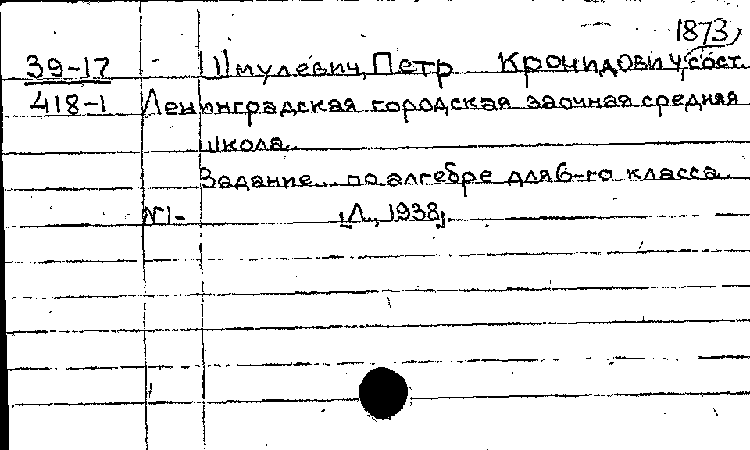 1873,
39-17 Шмулевич, Петр Кронидович, сост.
418-1 Ленинградская городская заочная средняя
школа.
Задание по алгебре для 6-го класса
№1- [Л., 1938].